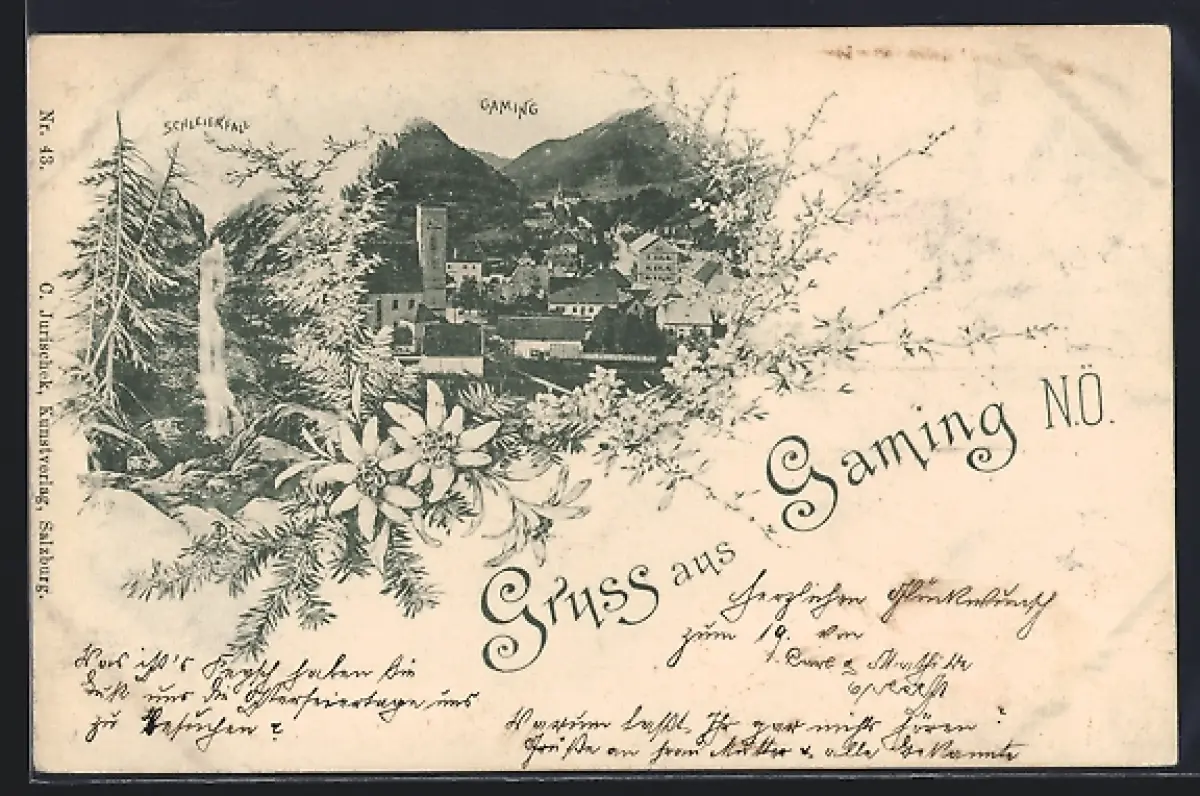 SCHLEIERFALL
GAMING
Nr. 43.
C. Jurischek, Kunstverlag, Salzburg.
Gruss aus Gaming N.Ö.
Herzlichen Glückwunsch
zum 19. von
Carl & Mathilde
Was ist's haben Sie
Lust uns die Osterfeiertage uns
zu besuchen?
Warum laßt Ihr gar nichts hören?
Grüße an Frau Mutter & alle Bekannte